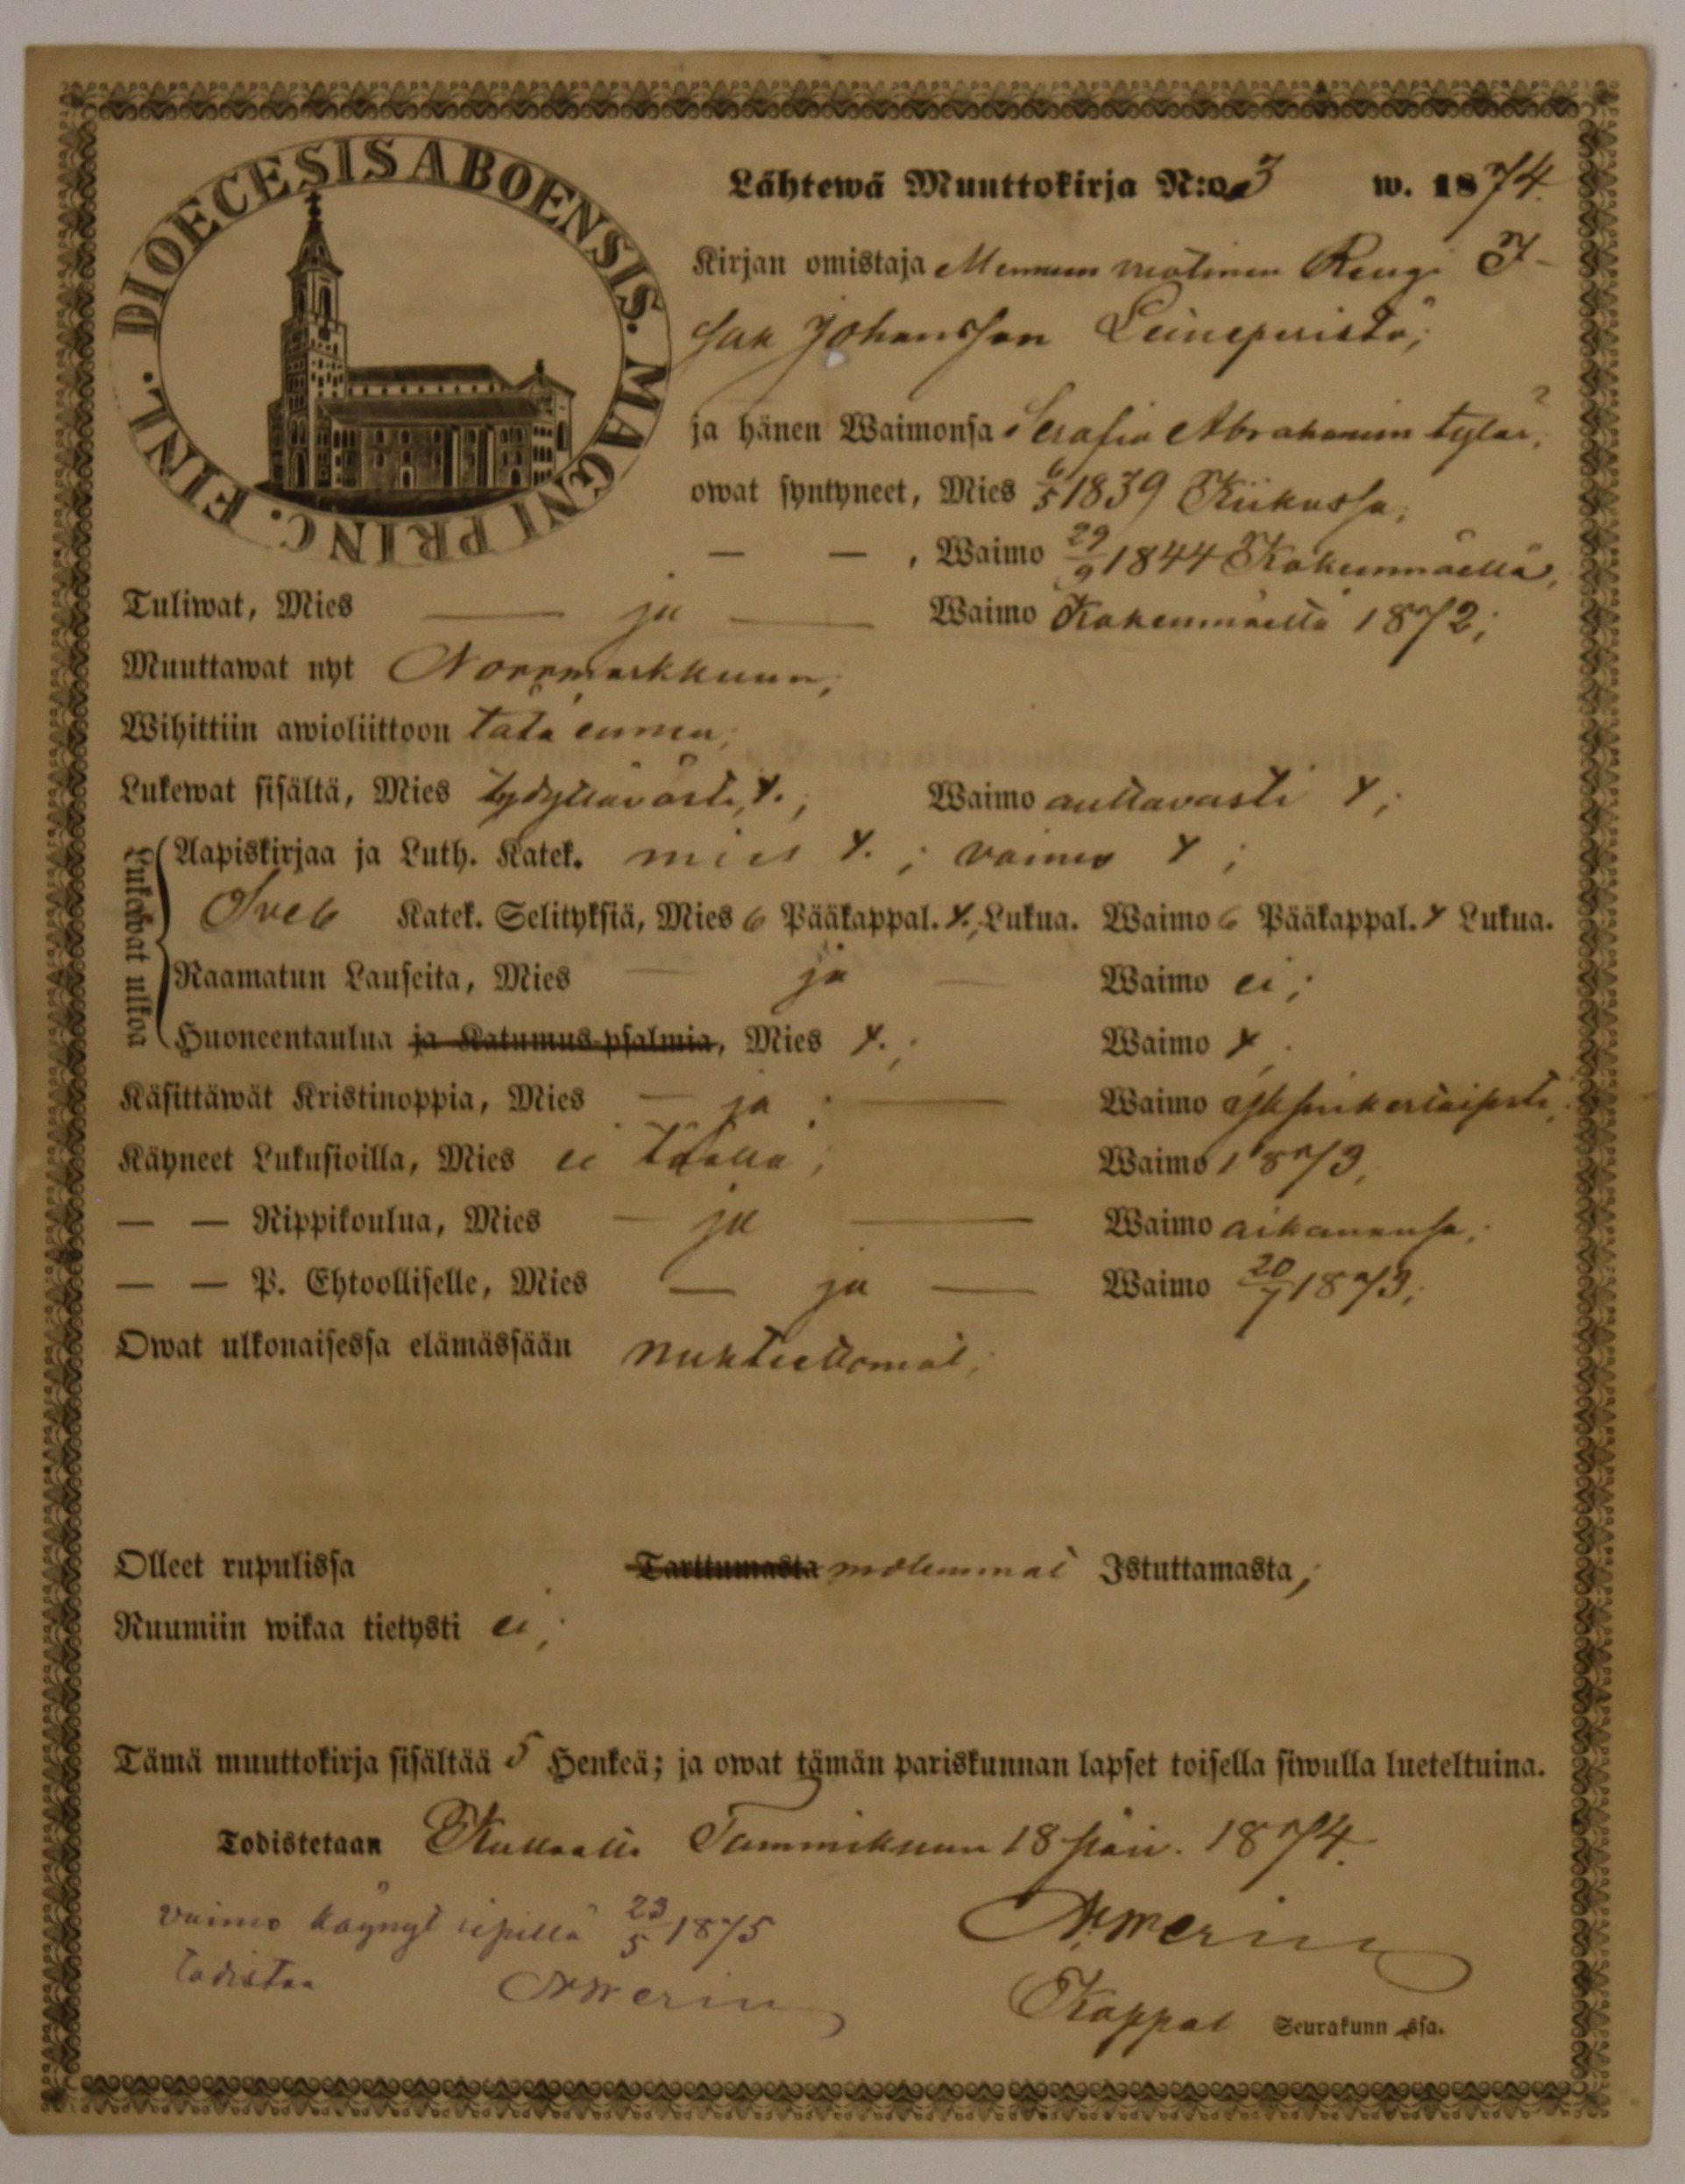 DIOECESIS ABOENSIS. MAGNI PRINC. FINL.
Lähtewä Muuttokirja N:o 3 w. 1874.
Kirjan omistaja Rengi I-
sak Johansson Leineperistä;
ja hänen Waimonsa Serafia Abrahamin tytär;
owat syntyneet, Mies 6/5 1839 Kiikussa;
— — , Waimo 29/9 1844 Kokenmäellä;
Tuliwat, Mies — ja — Waimo Kokenmäeltä 1872;
Muuttawat nyt Norrmarkkuun;
Wihittiin awioliittoon tätä ennen;
Lukewat sisältä, Mies tydyttävästi, Y.; Waimo auttavasti Y;
Lukewat ulkoa
Aapiskirjaa ja Luth. Katek. mies Y. ; vaimo Y ;
Sveb Katek. Selityksiä, Mies 6 Pääkappal. Y. Lukua. Waimo 6 Pääkappal. Y Lukua.
Raamatun Lauseita, Mies — ja — Waimo ei ;
Huoneentaulua ja Katumus-psalmia, Mies Y. ; Waimo Y ;
Käsittäwät Kristinoppia, Mies — ja — Waimo yksinkertaisesti;
Käyneet Lukusioilla, Mies ei täällä; Waimo 1873;
— — Rippikoulua, Mies — ja — Waimo aikanansa;
— — P. Ehtoolliselle, Mies — ja — Waimo 20/7 1873;
Owat ulkonaisessa elämässään nuhteettomat;
Olleet rupulissa Tarttumasta molemmat Istuttamasta;
Ruumiin wikaa tietysti ei;
Tämä muuttokirja sisältää 5 Henkeä; ja owat tämän pariskunnan lapset toisella siwulla lueteltuina.
Todistetaan Kullaalla Tammikuun 18 päiv. 1874.
vaimo käynyt ripillä 23/5 1875
todistaa
Kappal Seurakunn ssa.